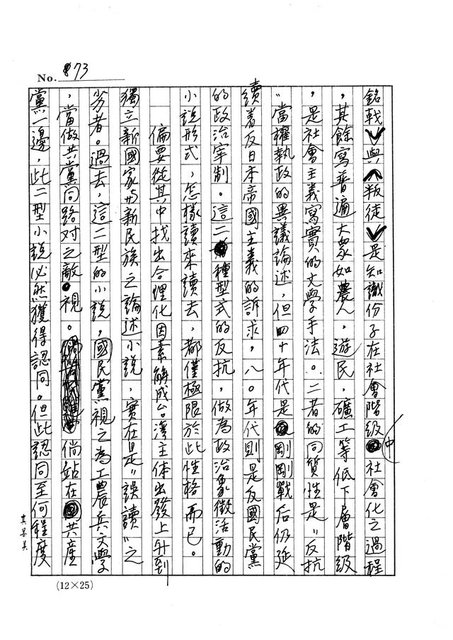 No. 73
銘戟》與《叛徒》是知識份子在社會階級中社會化之過程
,其餘寫普遍大衆如農人,遊民,礦工等低下層階級
,是社會主義寫實的文學手法。二者的同質性是"反抗
"當權執政的異議論述,但四十年代是剛剛戰后仍延
續着反日本帝國主義的訴求,八〇年代則是反國民黨
的政治宰制。這二種型式的反抗,做為政治象徵活動的
小説形式,怎樣讀來讀去,都僅極限於此性格而已。
偏要從其中找出合理化因素解成台湾主体出發上升到
獨立新國家的新民族之論述小説,實在是"誤讀"之
劣者。過去,這二型的小説,國民黨視之為工農兵文學
,當做共黨同路対之敵視。倘站在共產
黨一邊,此二型小説必然獲得認同。但此認同至何程度
(12×25)